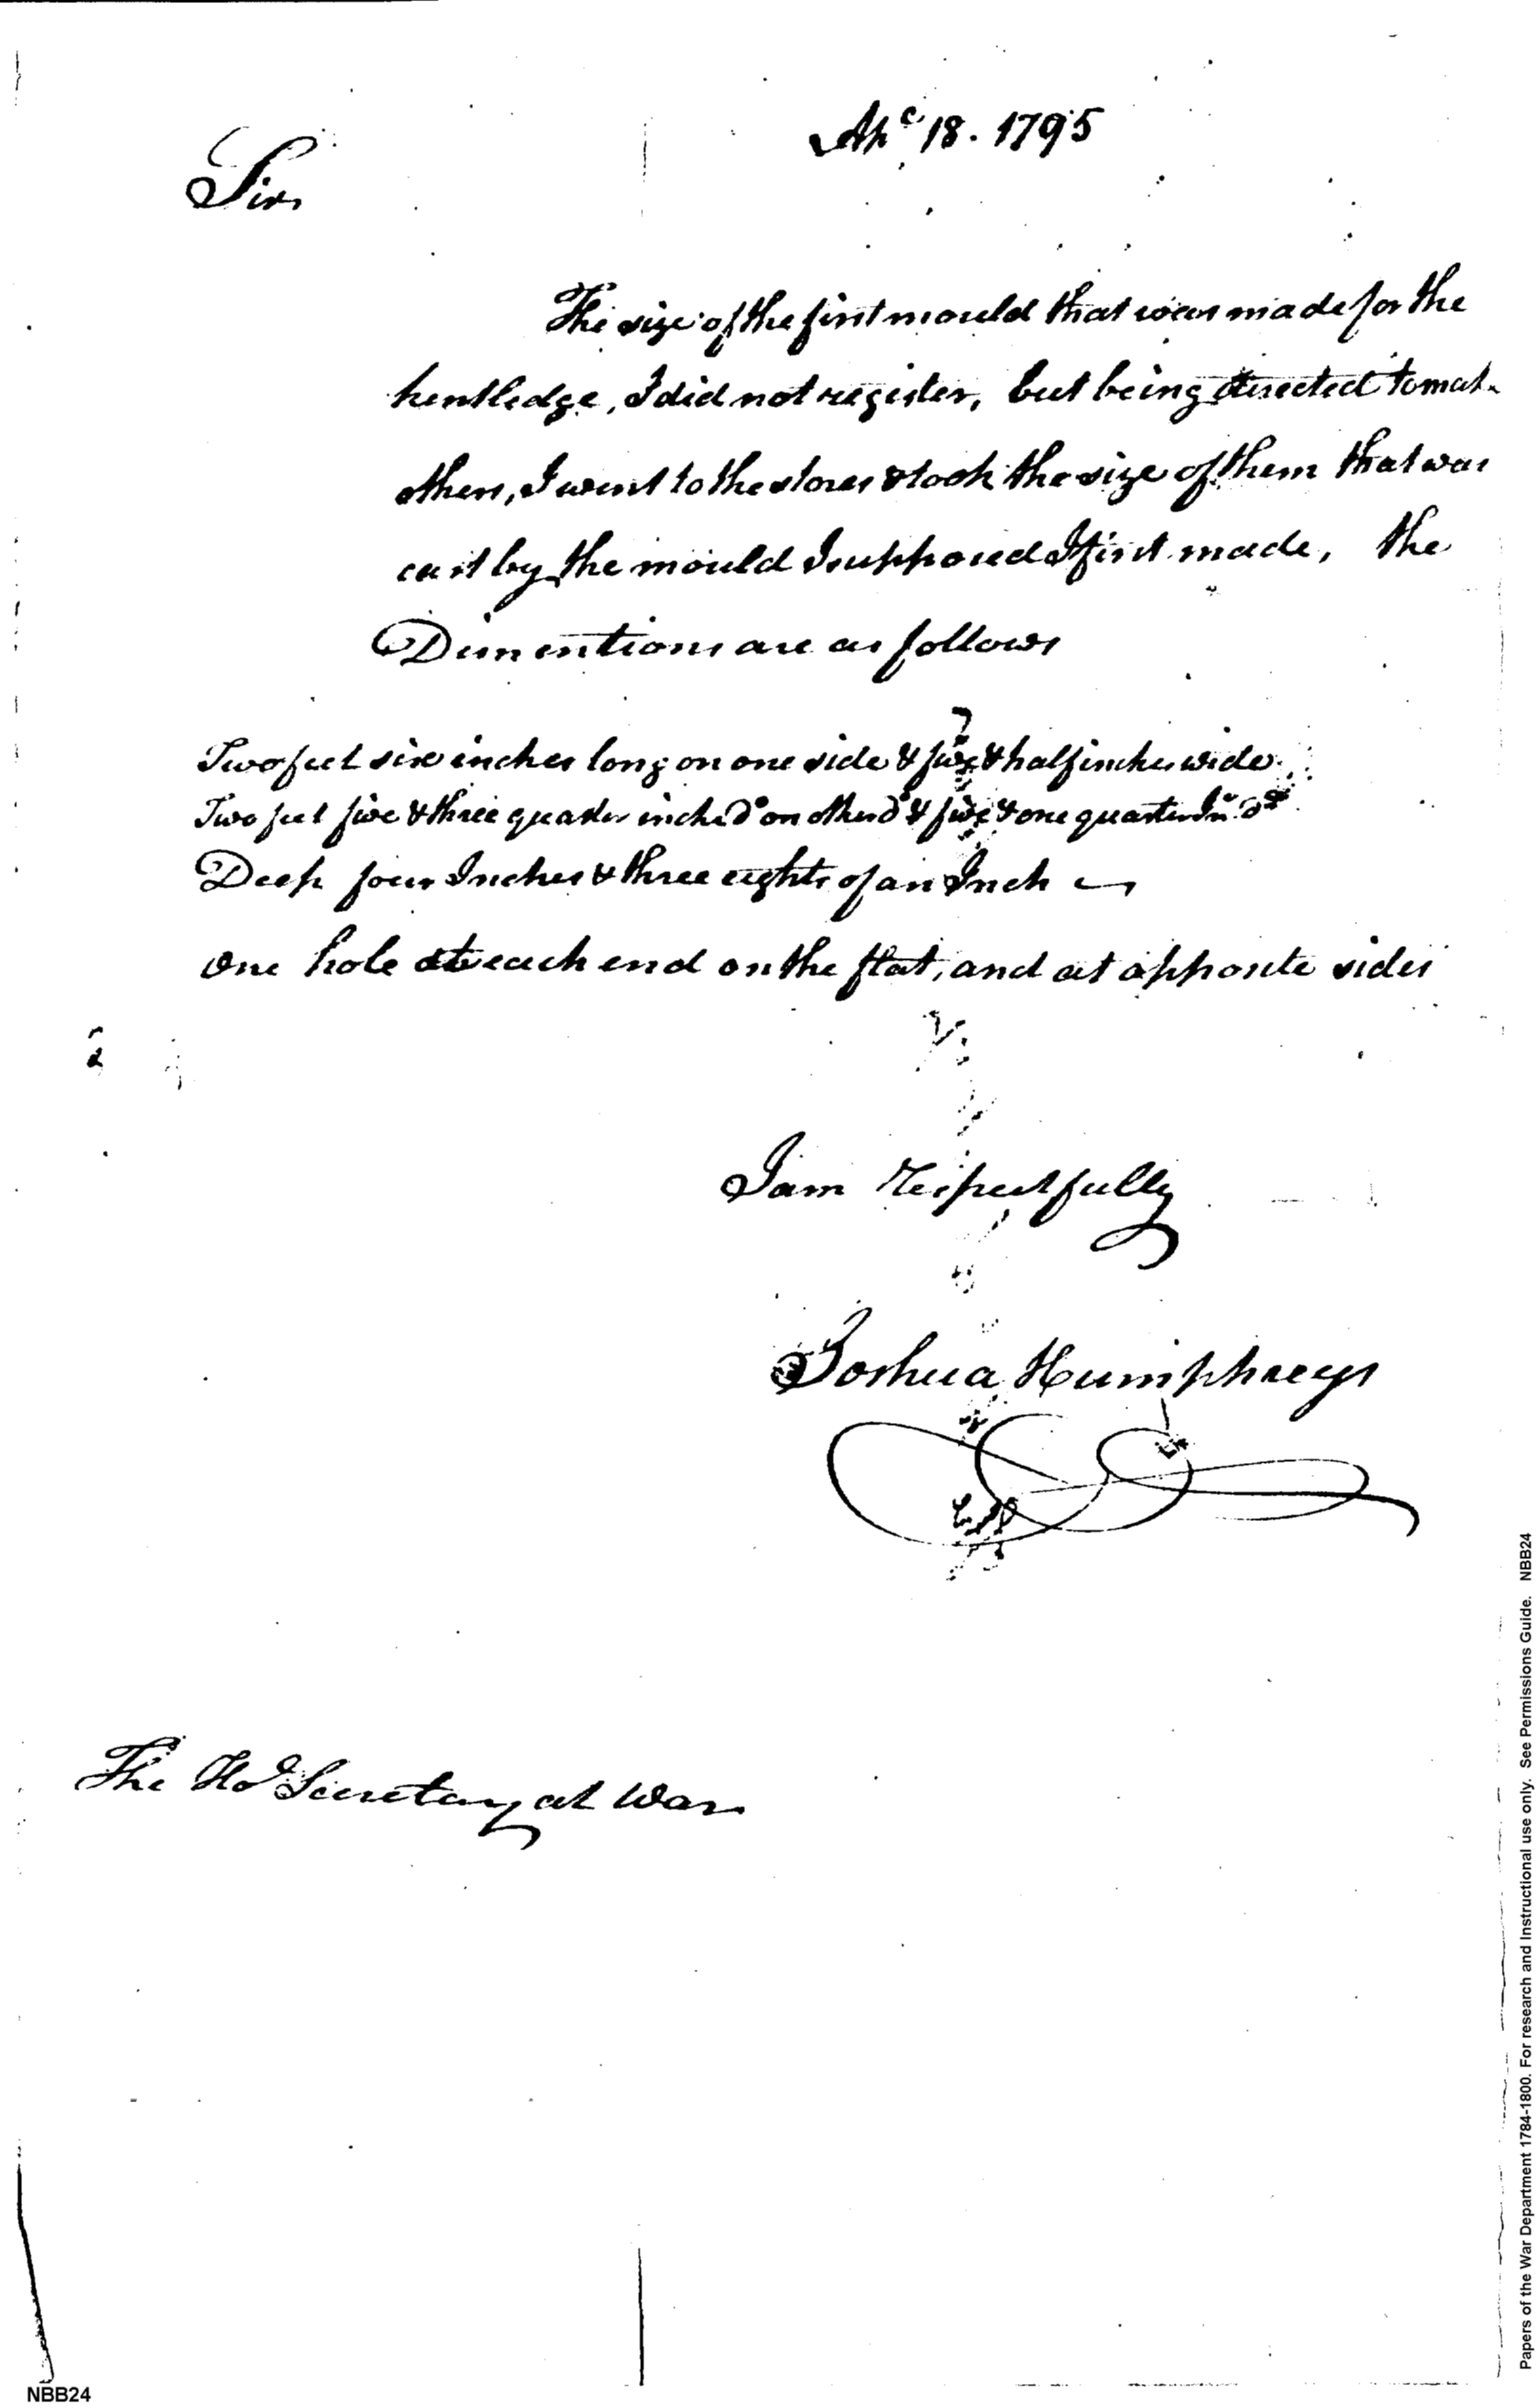 Ap.l 18. 1795
Sir
The size of the first mould that was made for the
kentledge, I did not register, but being directed to mak
others, I went to the stores & took the size of them that was
cast by the mould I supposed I first made, the
Dimentions are as follows
Two feet six inches long on one side & five & half inches wide
Two feet five & three quarter inches Do on other do & five & one quarter In. do
Deep four Inches & three eights of an Inch
one hole at each end on the flat, and at opposite sides
I am respectfully
Joshua Humphreys
The Ho Secretary at War
Papers of the War Department 1784-1800. For research and Instructional use only. See Permissions Guide. NBB24
NBB24